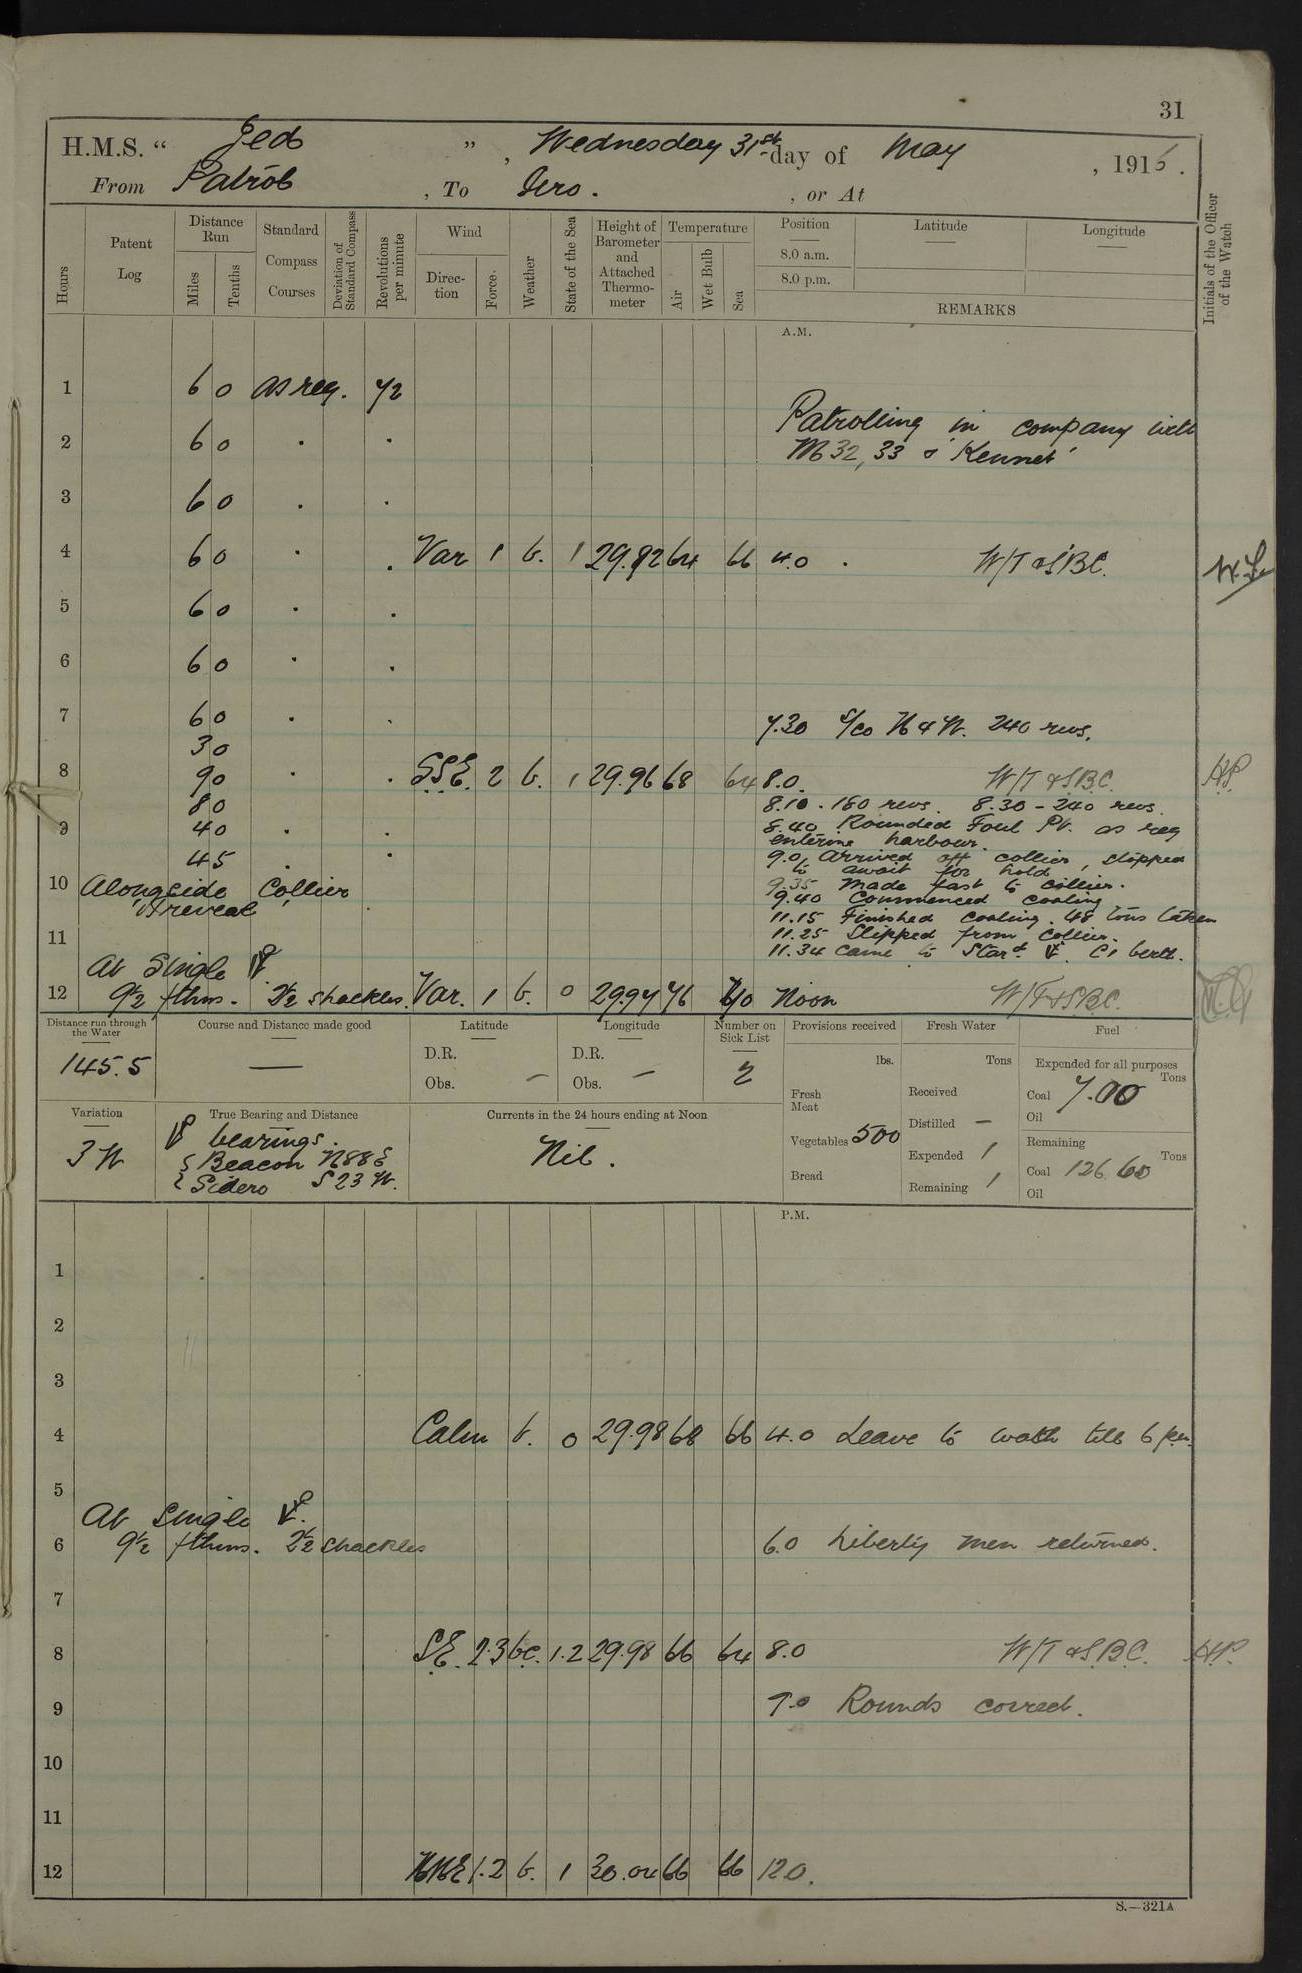 31
H.M.S. " Jed " , Wednesday 31st day of May , 1916.
From Patrol , To Iero . , or At
Hours
Patent Log
Distance Run
Miles
Tenths
Standard Compass Courses
Deviation of Standard Compass
Revolutions per minute
Wind
Direction
Force
Weather
State of the Sea
Height of Barometer and Attached Thermometer
Temperature
Air
Wet Bulb
Sea
Position
8.0 a.m.
8.0 p.m.
Latitude
Longitude
REMARKS
Initials of the Officer of the Watch
A.M.
1 6 0 as req. 72
Patrolling in company with
2 6 0 . .
M 32, 33 & 'Kennet'
3 6 0 . .
4 6 0 . . Var 1 b. 1 29.92 64 66 4.0 . W/T & S.B.C.
5 6 0 . .
6 6 0 . .
7 6 0 . .
7.30 S/co N 4 W. 240 revs.
3 0
8 9 0 . . S.S.E. 2 b. 1 29.96 68 64 8.0. W/T & S.B.C. H.P.
8 0
8.10 . 180 revs. 8.30 - 240 revs.
9 4 0 . .
8.40 Rounded Foul Pt. as req
entering harbour.
4 5 . .
9.0, Arrived off collier, stopped
to await for hold
10 Alongside Collier
9.35 Made fast to collier.
9.40 Commenced coaling
11.15 Finished coaling. 48 tons taken
11 11.25 Slipped from Collier.
11.34 Came to Stard. C1 berth.
At Single
12 9½ fthms. 2½ shackles. Var. 1 b. 0 29.97 76 70 Noon W/T & S.B.C.
Distance run through the Water
145.5
Course and Distance made good
—
Latitude
D.R.
Obs. —
Longitude
D.R.
Obs. —
Number on Sick List
2
Provisions received
lbs.
Fresh Meat
Vegetables 500
Bread
Fresh Water
Tons
Received
Distilled —
Expended 1
Remaining 1
Fuel
Expended for all purposes
Tons
Coal 7.00
Oil
Remaining
Tons
Coal 126.60
Oil
Variation
3 W
True Bearing and Distance
bearings.
{ Beacon N88E
{ Sidero S 23 W.
Currents in the 24 hours ending at Noon
Nil.
P.M.
1
2
3
4 Calm b. 0 29.98 68 66 4.0 Leave to watch till 6 p.m.
5
At Single
6 9½ fthms. 2½ shackles 6.0 Liberty men returned.
7
8 S.E. 2.3 bc. 1.2 29.98 66 64 8.0 W/T & S.B.C. H.P.
9 9.0 Rounds correct.
10
11
12 NNE 1.2 b. 1 30.04 66 66 12.0.
S.—321A